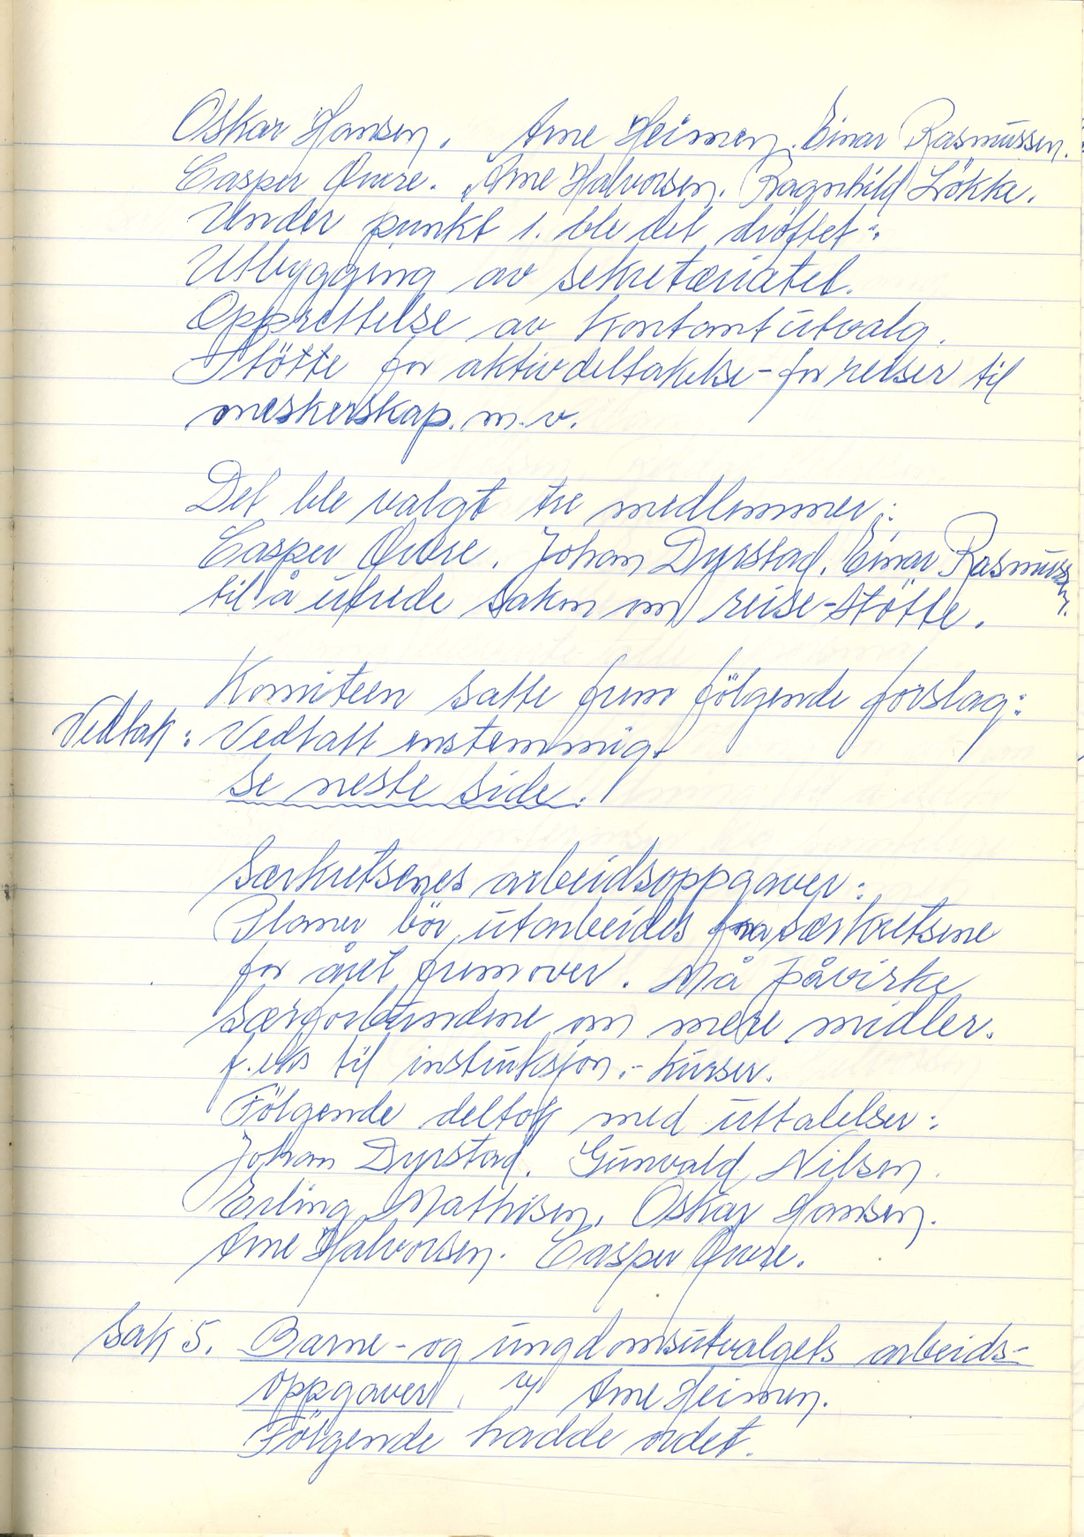 Oskar Hansen. Arne Heimen. Einar Rasmussen.
Casper Øvere. Arne Halvorsen. Ragnhild Lökke.
Under punkt 1. ble det dröftet:
Utbygging av sekretæriatet.
Opprettelse av kontantutvalg.
Stötte for aktivdeltakelse - for reiser til
meskerskap. m.v.
Det ble valgt tre medlemmer:
Casper Øvere. Johan Dyrstad. Einar Rasmussen.
til å utrede saken om reise-stötte.
Komiteen satte frem fölgende forslag:
Vedtak: Vedtatt enstemmig.
se neste side.
Særkretsenes arbeidsoppgaver:
Planer bör utarbeides fra særkretsene
for året fremover. Må påvirke
særforbundene om mere midler.
f.eks til instruksjon.- kurser.
Fölgende deltok med uttalelser:
Johan Dyrstad. Gunvald Nilsen.
Erling Mathisen. Oskar Hansen.
Arne Halvorsen. Casper Øvere.
Sak 5. Barne - og ungdomsutvalgets arbeids-
oppgaver. v/ Arne Heimen.
Fölgende hadde ordet.